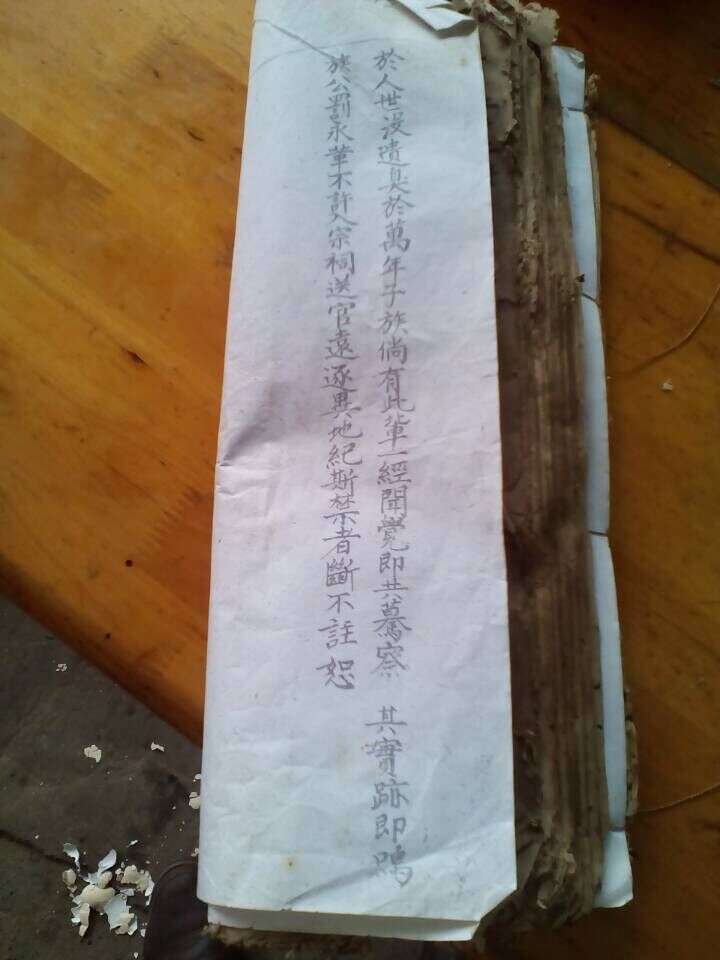 於人世没遺臭於萬年子族倘有此輩一經聞覺即共驀察 其實跡即鳴
族公罰永革不許入宗祠送官遠逐異地紀斯禁者斷不註恕